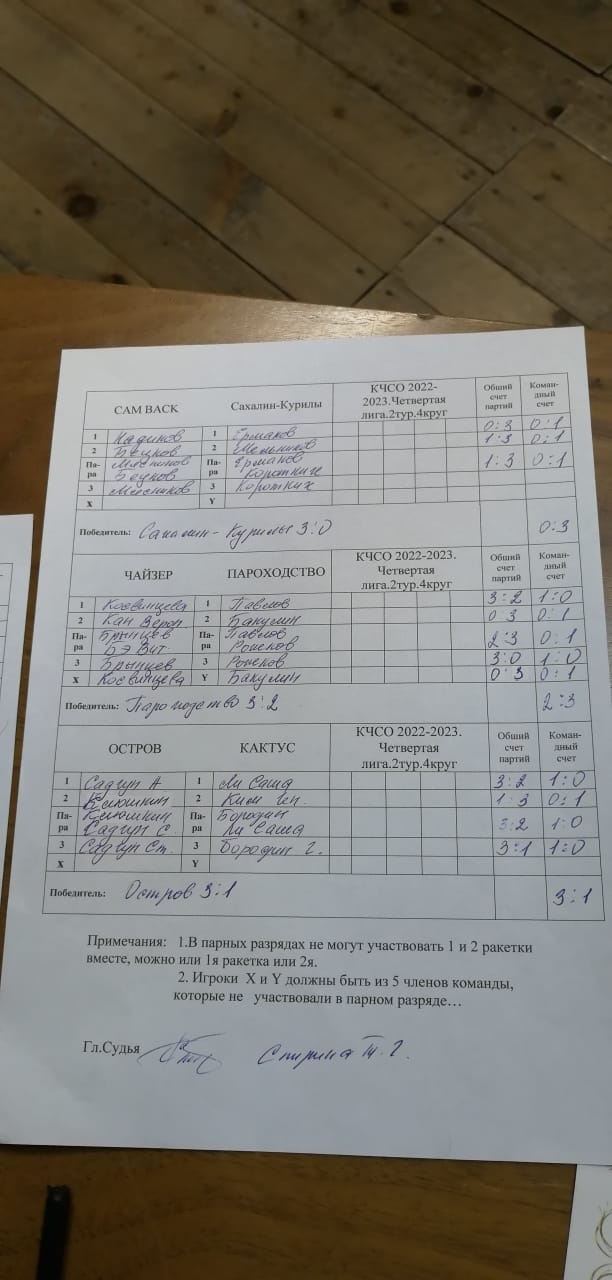 САМ BACK Сахалин-Курилы КЧСО 2022-2023.Четвертая лига.2тур.4круг Общий счет партий Коман-дный счет
1 1 Ермаков 0:3 0:1
2 2 Мельников 1:3 0:1
Па-ра Мясников Па-ра Ермаков 1:3 0:1
Коротких
3 Мясников 3 Коротких
X Y
Победитель: Сахалин-Курилы 3:0 0:3
ЧАЙЗЕР ПАРОХОДСТВО КЧСО 2022-2023. Четвертая лига.2тур.4круг Общий счет партий Коман-дный счет
1 Косвинцева 1 Павлов 3:2 1:0
2 Кан Верон. 2 Бакулин 0:3 0:1
Па-ра Брынцев Па-ра Павлов 2:3 0:1
Бэ Вит.
3 Брынцев 3 3:0 1:0
X Косвинцева Y Бакулин 0:3 0:1
Победитель: Пароходство 3:2 2:3
ОСТРОВ КАКТУС КЧСО 2022-2023. Четвертая лига.2тур.4круг Общий счет партий Коман-дный счет
1 Садгун А 1 Ли Саша 3:2 1:0
2 Клюшкин 2 Ким 1:3 0:1
Па-ра Клюшкин Па-ра Бородин 3:2 1:0
Садгун С. Ли Саша
3 Садгун Ст. 3 Бородин Г. 3:1 1:0
X Y
Победитель: Остров 3:1 3:1
Примечания: 1.В парных разрядах не могут участвовать 1 и 2 ракетки
вместе, можно или 1я ракетка или 2я.
2. Игроки X и Y должны быть из 5 членов команды,
которые не участвовали в парном разряде…
Гл.Судья Спирина Т. Г.